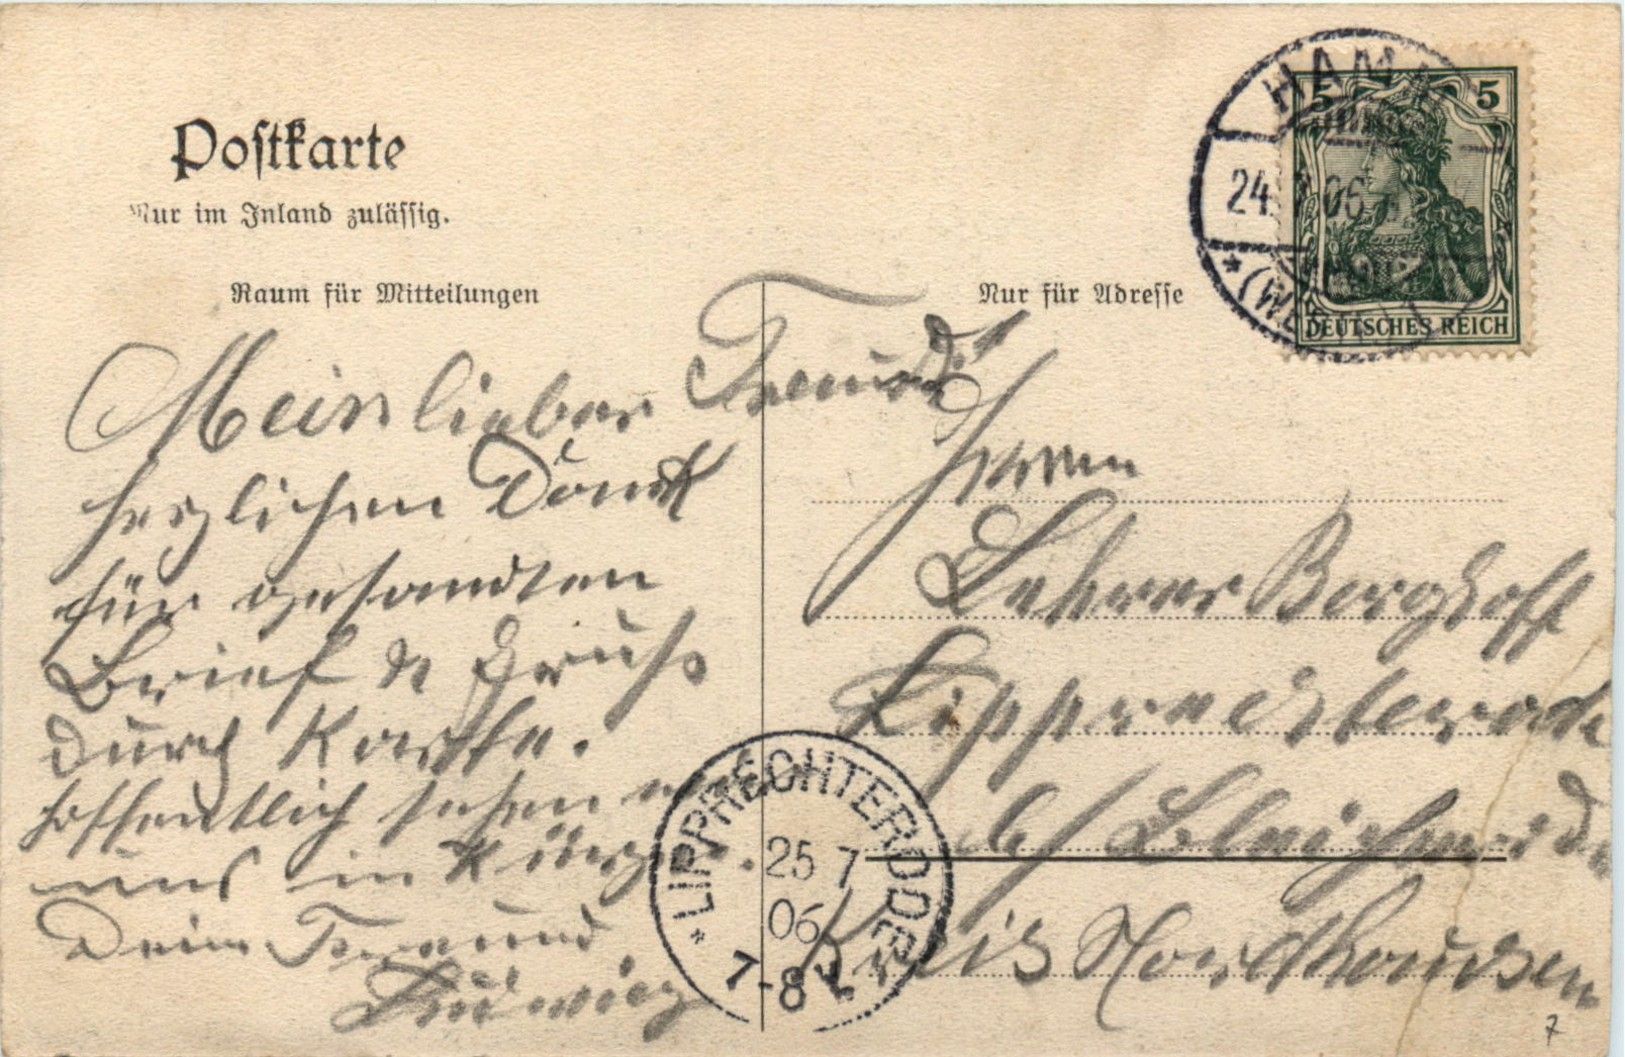 Postkarte
Nur im Inland zulässig.
Raum für Mitteilungen
Nur für Adresse
HAM
24. 06
* (WEST
5 5
DEUTSCHES REICH
Mein lieber Freund!
herzlichen Dank
für gesandten
Brief & Gruß
durch Karte.
hoffentlich sehen
uns in Kürze.
Dein Freund
Ludwig
Herrn
Lehrer Berghoff
Lipprechterode
b/ Bleicherode
Kreis Nordhausen
* LIPPRECHTERODE
25 7
06
7-8 V
7